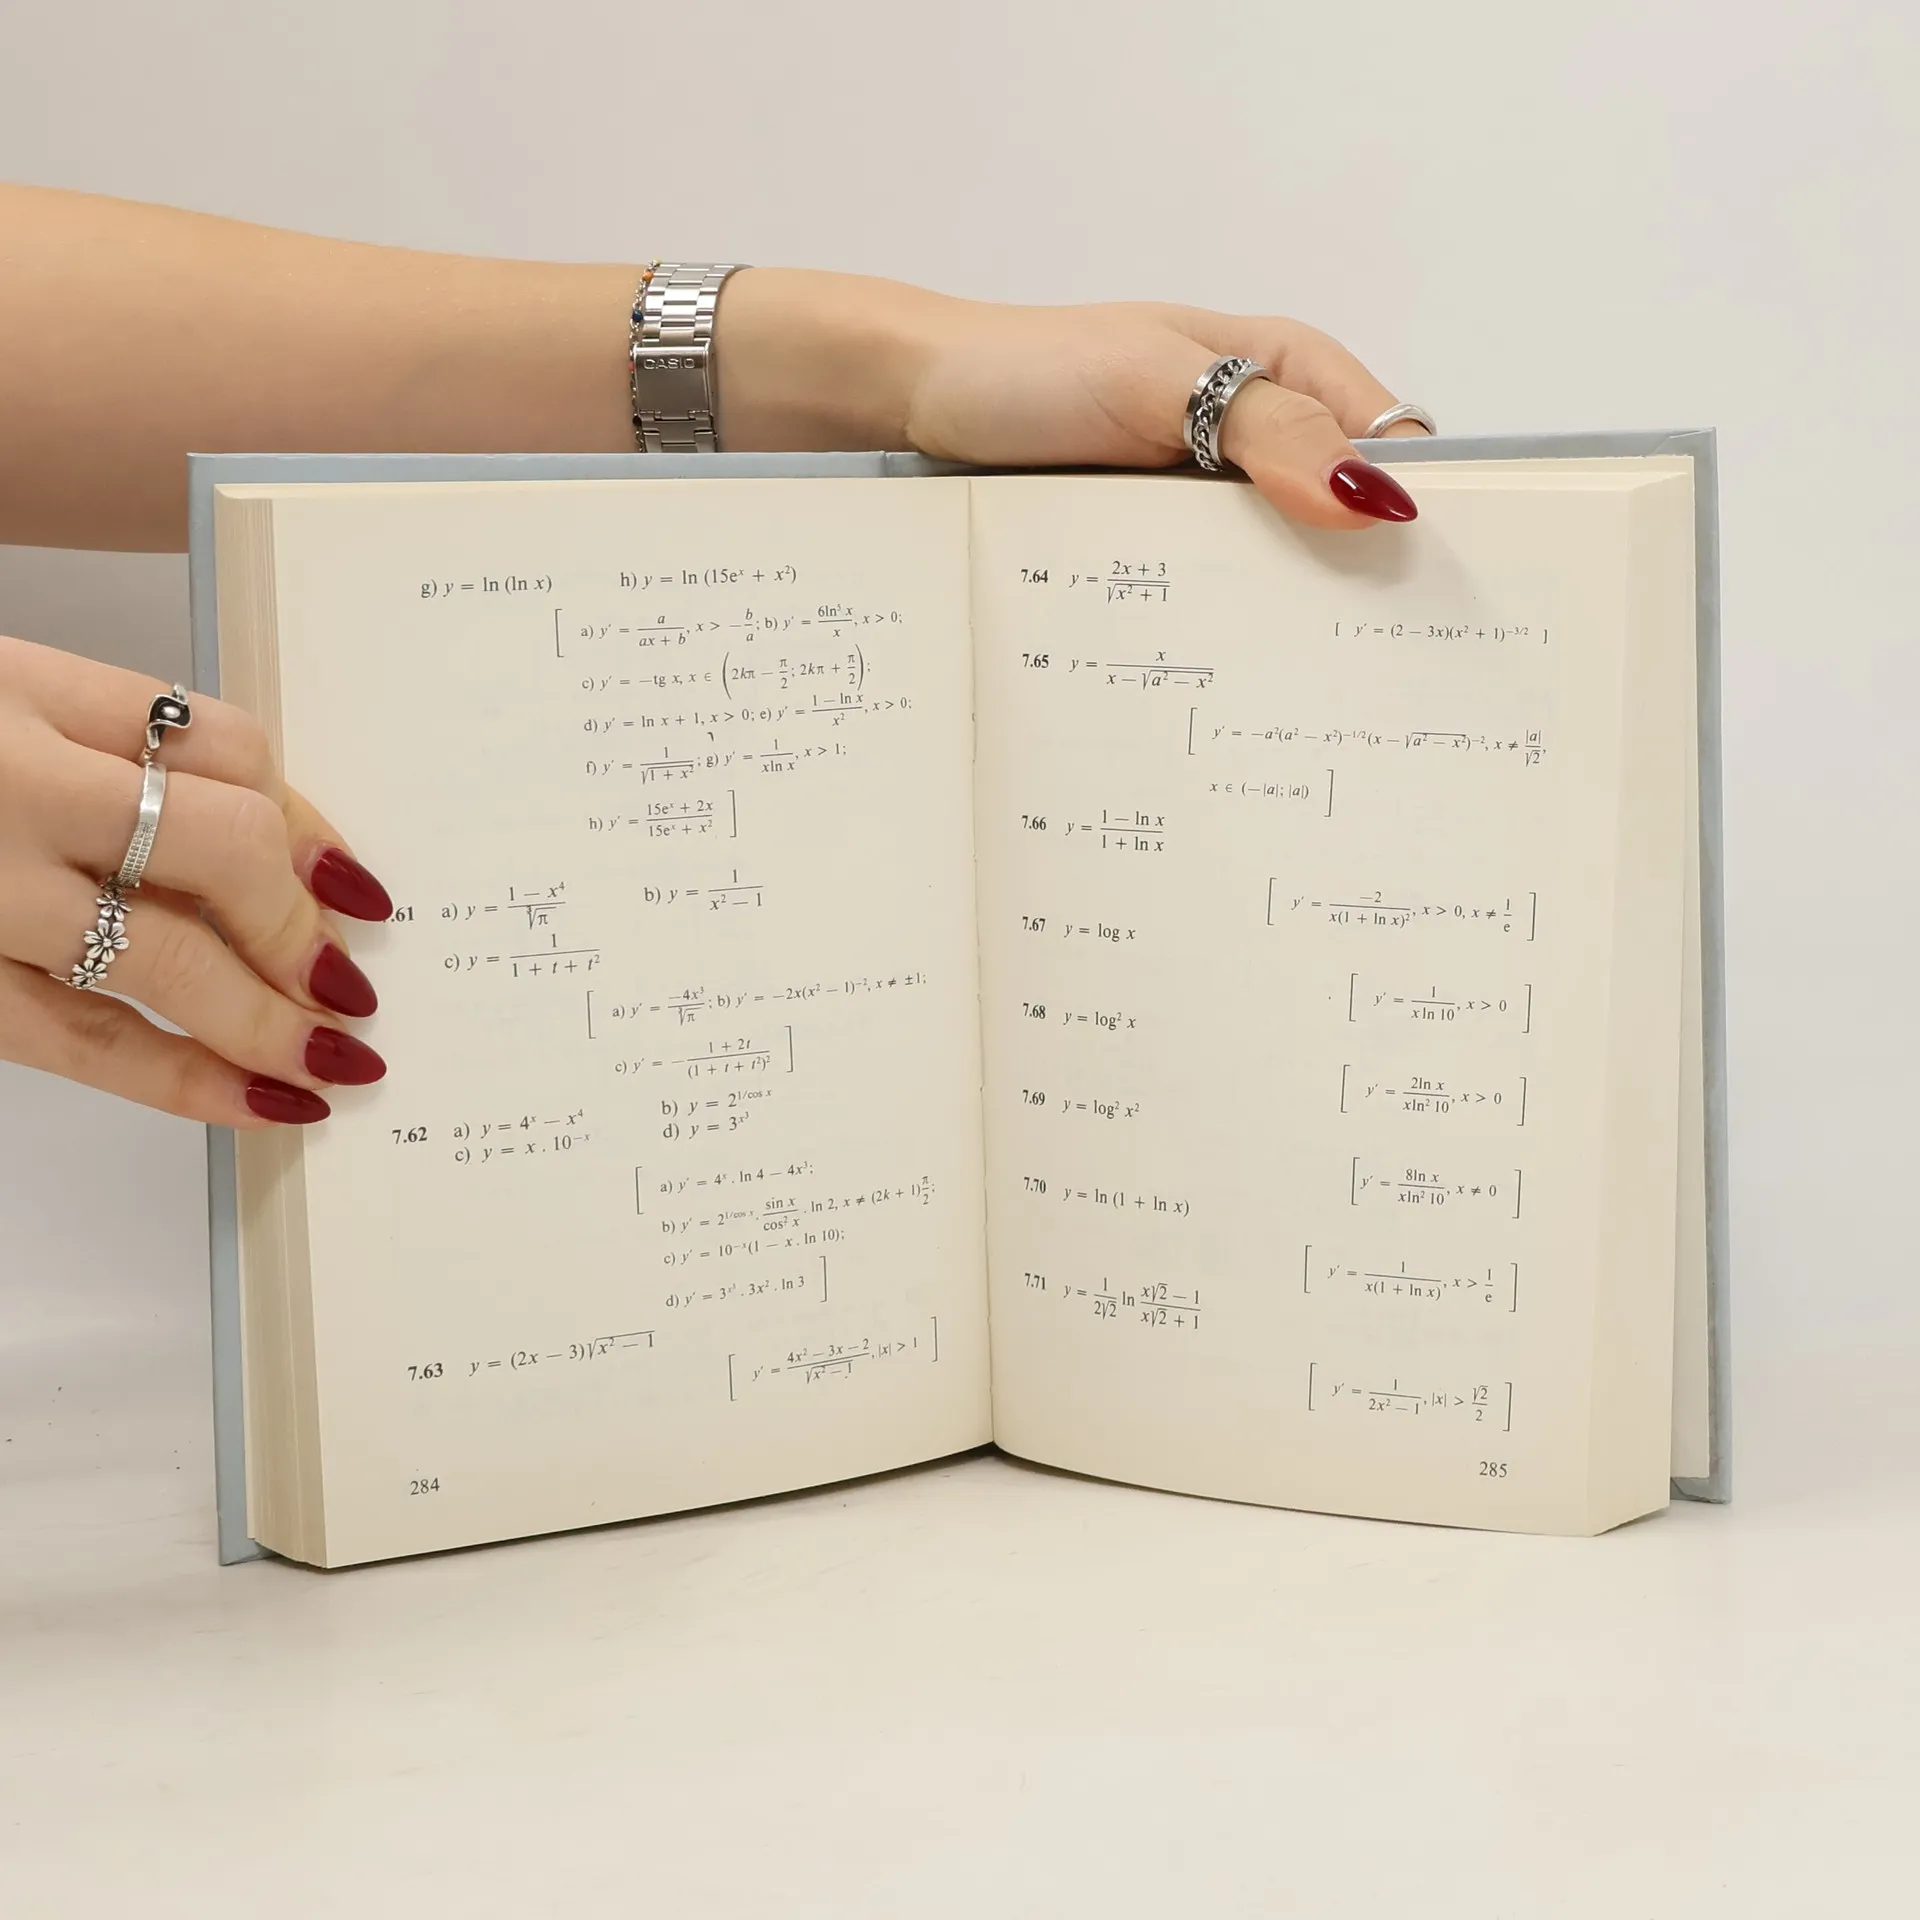 CASIO
g) y = ln (ln x) h) y = ln (15eˣ + x²)
[ a) y′ = a/(ax + b), x > −b/a; b) y′ = 6ln⁵ x/x, x > 0;
c) y′ = −tg x, x ∈ (2kπ − π/2; 2kπ + π/2);
d) y′ = ln x + 1, x > 0; e) y′ = (1 − ln x)/x², x > 0;
f) y′ = 1/√(1 + x²); g) y′ = 1/(xln x), x > 1;
h) y′ = (15eˣ + 2x)/(15eˣ + x²) ]
.61 a) y = (1 − x⁴)/∛π b) y = 1/(x² − 1)
c) y = 1/(1 + t + t²)
[ a) y′ = −4x³/∛π; b) y′ = −2x(x² − 1)⁻², x ≠ ±1;
c) y′ = −(1 + 2t)/(1 + t + t²)² ]
7.62 a) y = 4ˣ − x⁴ b) y = 2^(1/cos x)
c) y = x . 10⁻ˣ d) y = 3^(x³)
[ a) y′ = 4ˣ . ln 4 − 4x³;
b) y′ = 2^(1/cos x) . sin x/cos² x . ln 2, x ≠ (2k + 1)π/2;
c) y′ = 10⁻ˣ(1 − x . ln 10);
d) y′ = 3^(x³) . 3x² . ln 3 ]
7.63 y = (2x − 3)√(x² − 1)
[ y′ = (4x² − 3x − 2)/√(x² − 1), |x| > 1 ]
284
7.64 y = (2x + 3)/√(x² + 1)
[ y′ = (2 − 3x)(x² + 1)^(−3/2) ]
7.65 y = x/(x − √(a² − x²))
[ y′ = −a²(a² − x²)^(−1/2)(x − √(a² − x²))⁻², x ≠ |a|/√2,
x ∈ (−|a|; |a|) ]
7.66 y = (1 − ln x)/(1 + ln x)
[ y′ = −2/(x(1 + ln x)²), x > 0, x ≠ 1/e ]
7.67 y = log x
[ y′ = 1/(xln 10), x > 0 ]
7.68 y = log² x
[ y′ = 2ln x/(xln² 10), x > 0 ]
7.69 y = log² x²
[ y′ = 8ln x/(xln² 10), x ≠ 0 ]
7.70 y = ln (1 + ln x)
[ y′ = 1/(x(1 + ln x)), x > 1/e ]
7.71 y = 1/(2√2) ln (x√2 − 1)/(x√2 + 1)
[ y′ = 1/(2x² − 1), |x| > √2/2 ]
285